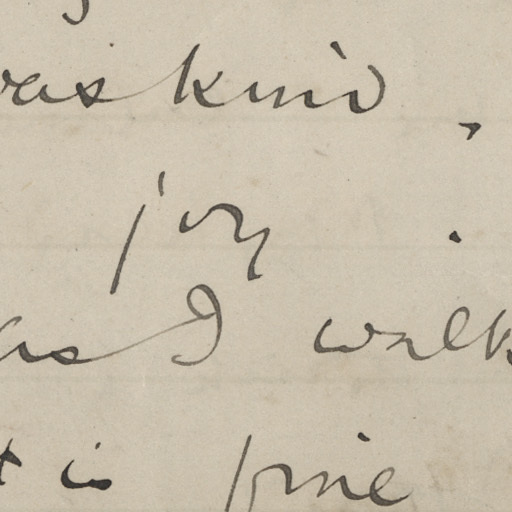 was kind,
joy.
as I walk
it is fine